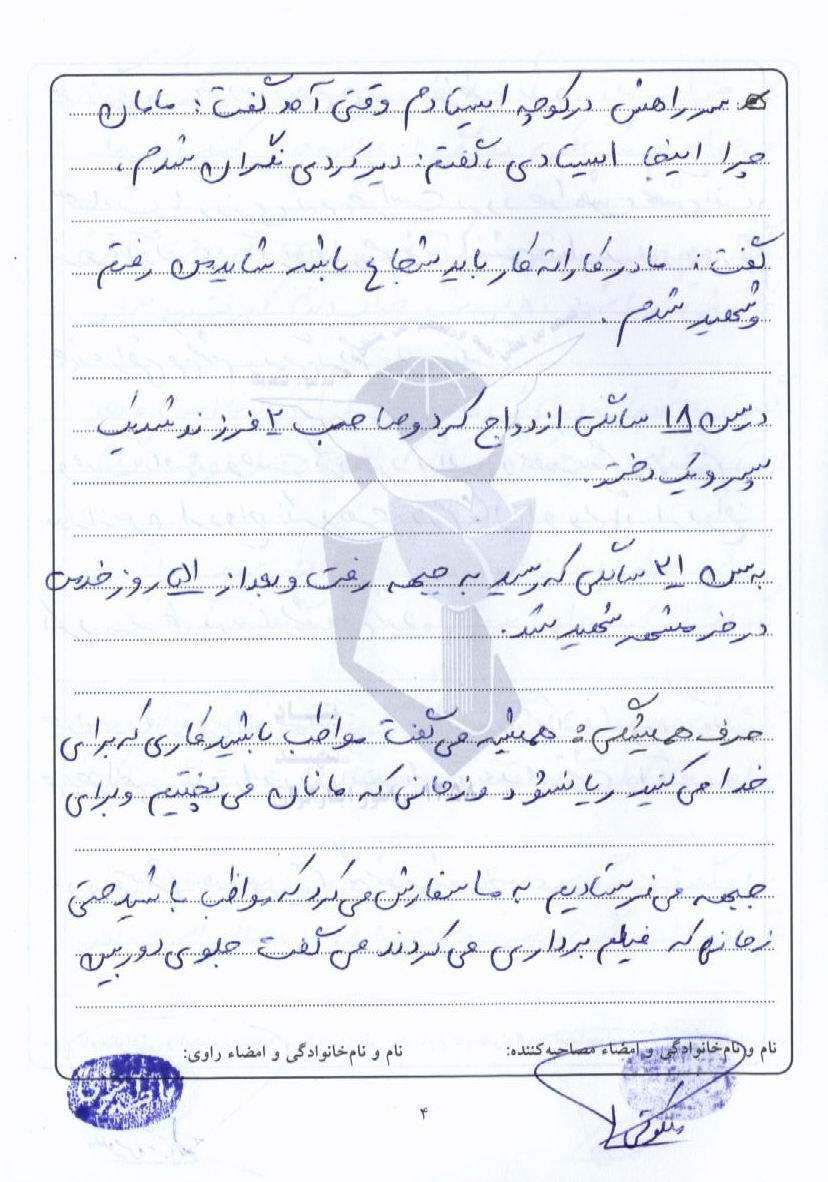 سر راهش در کوچه ایستادم وقتی آمد گفت: مامان
چرا اینجا ایستادی، گفتم: دیر کردی نگران شدم،
گفت: مادر فداکار باید شجاع باشد شاید من رفتم
و شهید شدم.
در سن ۱۸ سالگی ازدواج کرد و صاحب ۲ فرزند شد یک
پسر و یک دختر.
به سن ۲۱ سالگی که رسید به جبهه رفت و بعد از روز خدمت
در خرمشهر شهید شد.
حرف همیشگی: همیشه می گفت مواظب باشید کاری که برای
خدا می کنید ریا نشود و زمانی که ما نان می پختیم و برای
جبهه می فرستادیم به ما سفارش می کرد که مواظب باشید حتی
زمانی که فیلم برداری می کردند می گفت جلوی دوربین
نام و نام‌خانوادگی و امضاء مصاحبه‌کننده:
نام و نام‌خانوادگی و امضاء راوی:
۴